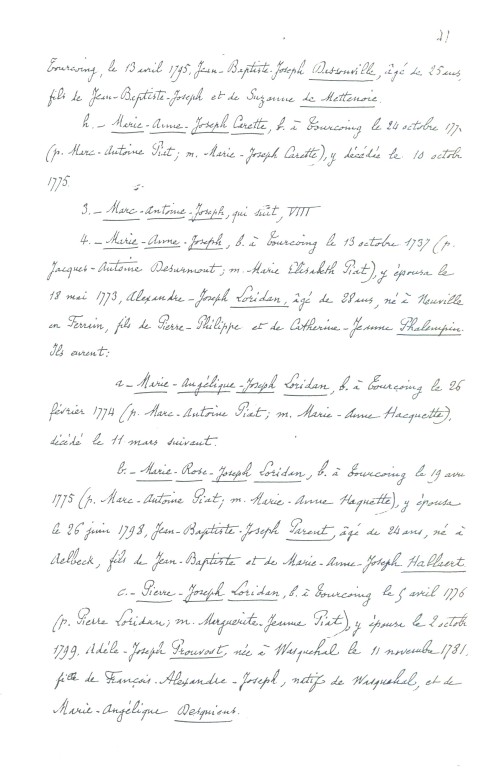 21
Tourcoing, le 13 avril 1795, Jean-Baptiste-Joseph Dussouville, âgé de 25 ans,
fils de Jean-Baptiste-Joseph et de Suzanne de Mettenoie.
h. - Marie-Anne-Joseph Carette, b. à Tourcoing le 24 octobre 177
(p. Marc-Antoine Piat ; m. Marie-Joseph Carette), y décédée le 10 octob
1775.
3. - Marc-Antoine-Joseph, qui suit, VIII
4. - Marie-Anne-Joseph, b. à Tourcoing le 13 octobre 1737 (p.
Jacques-Antoine Desurmont ; m. Marie Elisabeth Piat), y épousa le
18 mai 1773, Alexandre-Joseph Loridan, âgé de 28 ans, né à Neuville
en Ferrain, fils de Pierre-Philippe et de Catherine-Jeanne Phalempin.
Ils eurent :
a - Marie-Angélique-Joseph Loridan, b. à Tourcoing le 26
février 1774 (p. Marc-Antoine Piat ; m. Marie-Anne Hacquette),
décédé le 11 mars suivant.
b. - Marie-Rose-Joseph Loridan, b. à Tourcoing le 19 avri
1775 (p. Marc-Antoine Piat ; m. Marie-Anne Haquette), y épousa
le 26 juin 1798, Jean-Baptiste-Joseph Parent, âgé de 24 ans, né à
Aelbeck, fils de Jean-Baptiste et de Marie-Anne-Joseph Hallaert.
c. - Pierre-Joseph Loridan, b. à Tourcoing le 5 avril 1776
(p. Pierre Loridan ; m. Marguerite-Jeanne Piat), y épousa le 2 octob
1799, Adèle-Joseph Prouvost, née à Wasquehal le 11 novembre 1781.
fille de François-Alexandre-Joseph, natif de Wasquehal, et de
Marie-Angélique Desquiens.